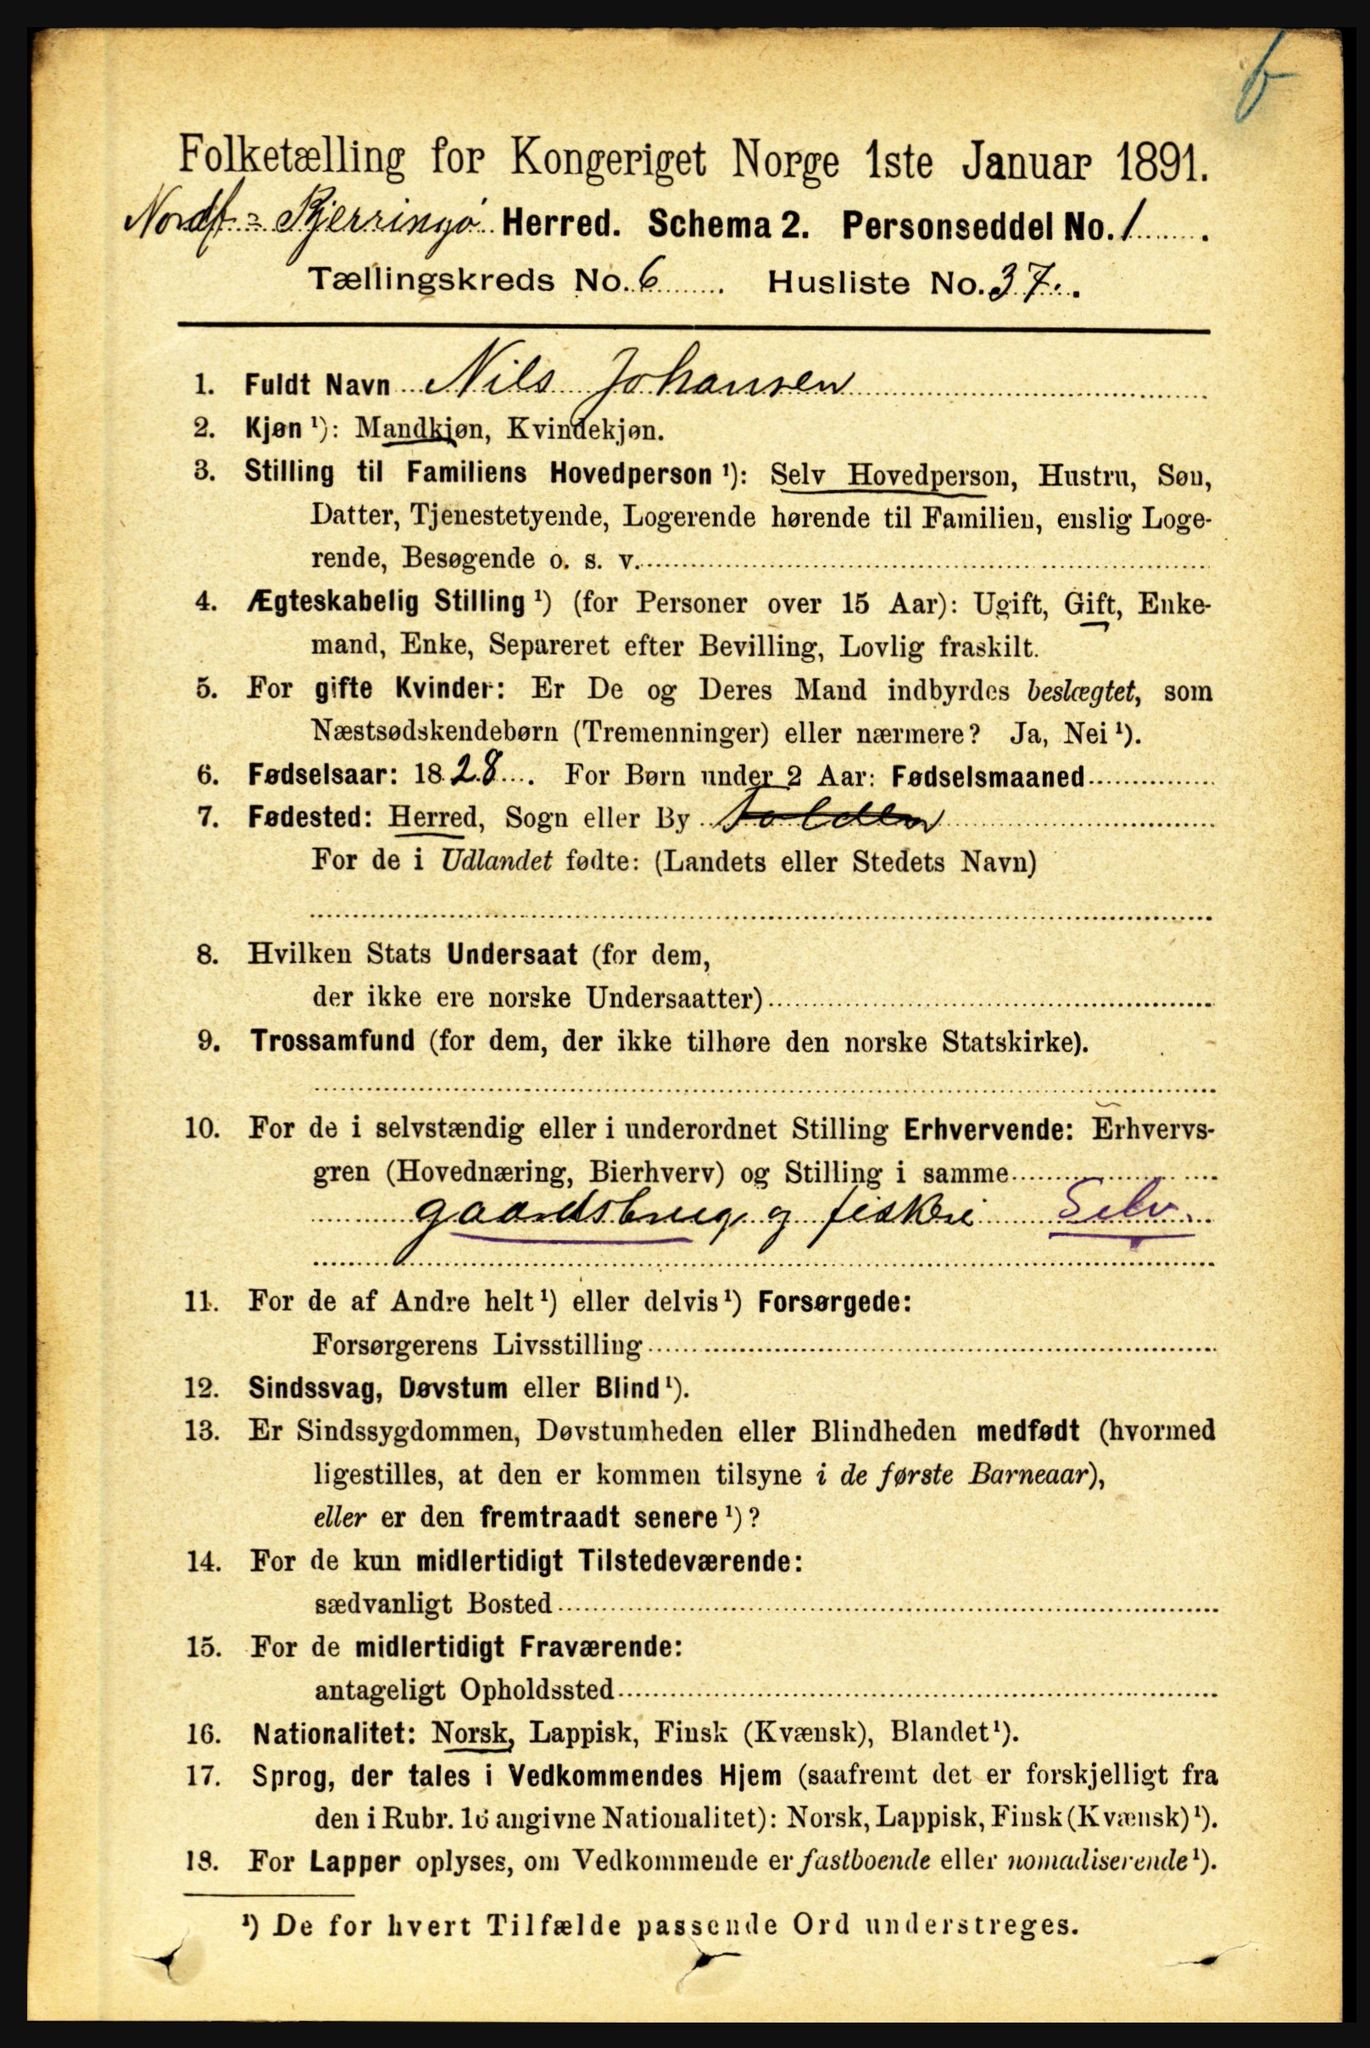 b
Folketælling for Kongeriget Norge 1ste Januar 1891.
Nordf.-Kjerringø Herred. Schema 2. Personseddel No. 1.
Tællingskreds No. 6. Husliste No. 37.
1. Fuldt Navn Nils Johansen
2. Kjøn ¹): Mandkjøn, Kvindekjøn.
3. Stilling til Familiens Hovedperson ¹): Selv Hovedperson, Hustru, Søn,
Datter, Tjenestetyende, Logerende hørende til Familien, enslig Loge-
rende, Besøgende o. s. v.
4. Ægteskabelig Stilling ¹) (for Personer over 15 Aar): Ugift, Gift, Enke-
mand, Enke, Separeret efter Bevilling, Lovlig fraskilt.
5. For gifte Kvinder: Er De og Deres Mand indbyrdes beslægtet, som
Næstsødskendebørn (Tremenninger) eller nærmere? Ja, Nei ¹).
6. Fødselsaar: 1828. For Børn under 2 Aar: Fødselsmaaned
7. Fødested: Herred, Sogn eller By
For de i Udlandet fødte: (Landets eller Stedets Navn)
8. Hvilken Stats Undersaat (for dem,
der ikke ere norske Undersaatter)
9. Trossamfund (for dem, der ikke tilhøre den norske Statskirke).
10. For de i selvstændig eller i underordnet Stilling Erhvervende: Erhvervs-
gren (Hovednæring, Bierhverv) og Stilling i samme
gaardsbrug og fiskeri Selv.
11. For de af Andre helt ¹) eller delvis ¹) Forsørgede:
Forsørgerens Livsstilling
12. Sindssvag, Døvstum eller Blind ¹).
13. Er Sindssygdommen, Døvstumheden eller Blindheden medfødt (hvormed
ligestilles, at den er kommen tilsyne i de første Barneaar),
eller er den fremtraadt senere ¹)?
14. For de kun midlertidigt Tilstedeværende:
sædvanligt Bosted
15. For de midlertidigt Fraværende:
antageligt Opholdssted
16. Nationalitet: Norsk, Lappisk, Finsk (Kvænsk), Blandet ¹).
17. Sprog, der tales i Vedkommendes Hjem (saafremt det er forskjelligt fra
den i Rubr. 16 angivne Nationalitet): Norsk, Lappisk, Finsk (Kvænsk) ¹).
18. For Lapper oplyses, om Vedkommende er fastboende eller nomadiserende ¹).
¹) De for hvert Tilfælde passende Ord understreges.